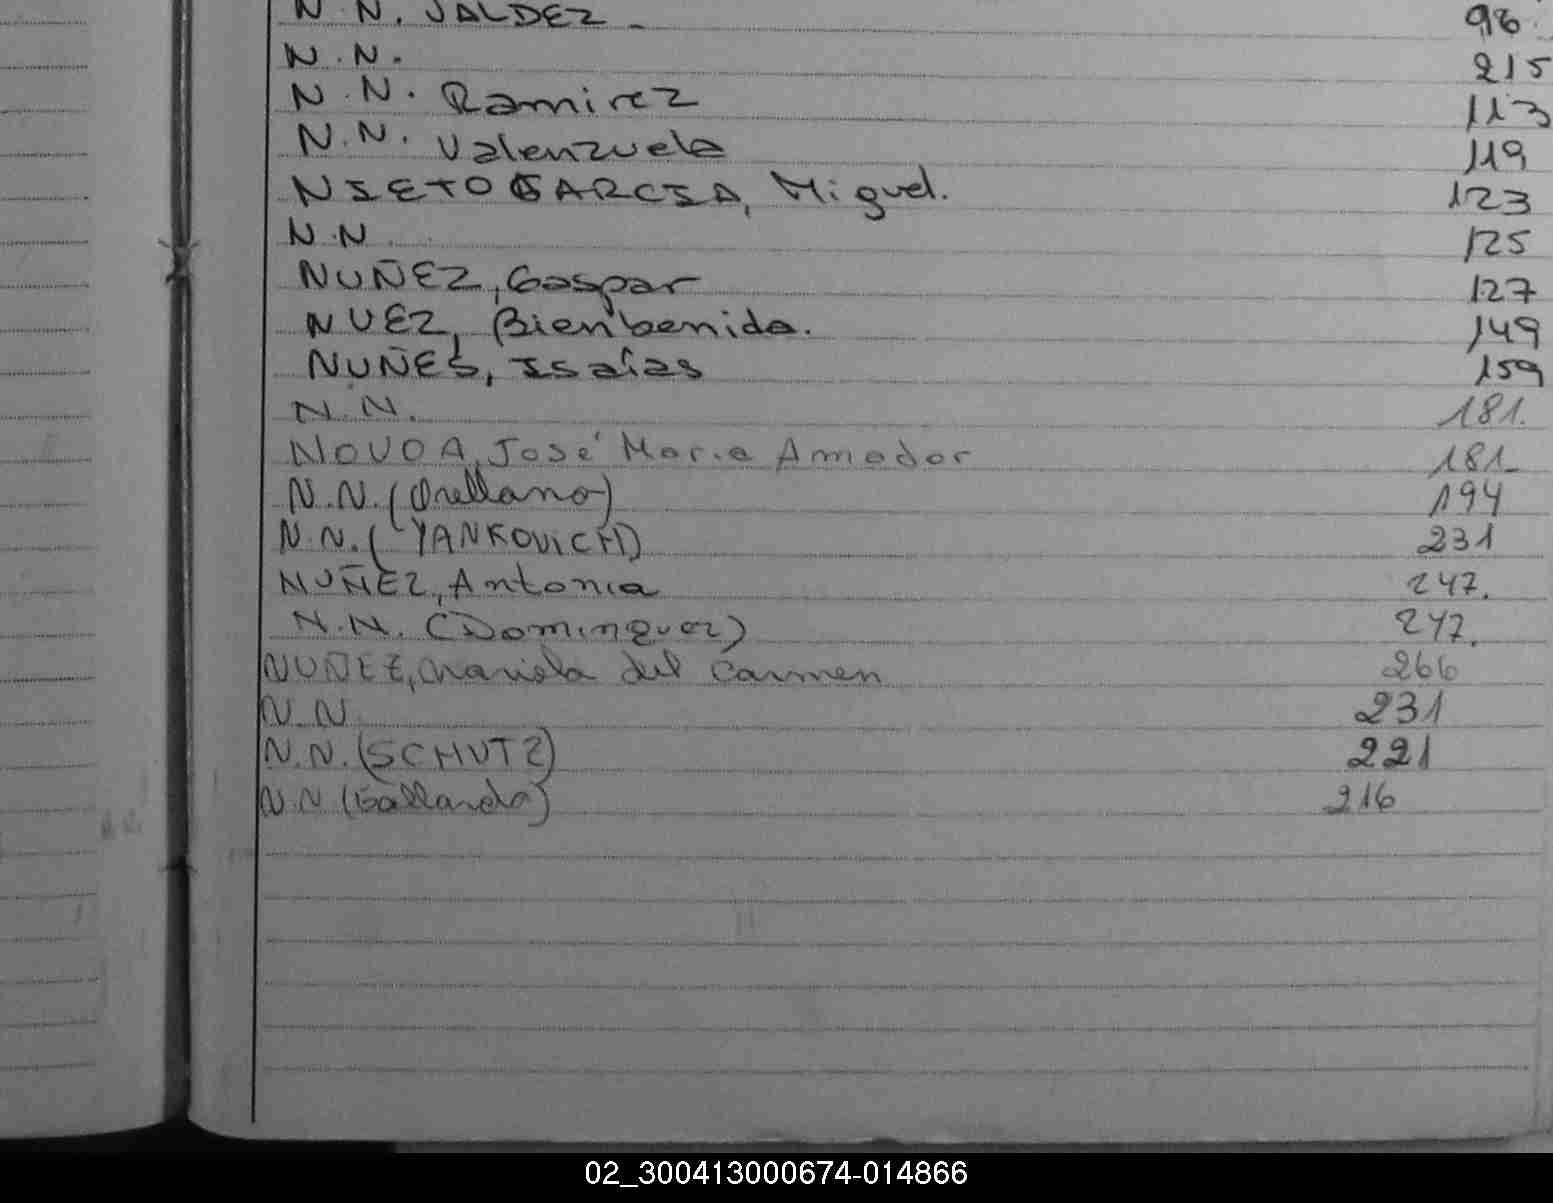 N.N. VALDEZ 98
N.N. 215
N.N. Ramirez 113
N.N. Valenzuela 119
NIETO GARCIA, Miguel. 123
N.N. 125
NUÑEZ, Gaspar 127
NUEZ, Bienbenida. 149
NUÑES, Isaías 159
N.N. 181.
NOVOA, José Maria Amador 181
N.N. (Orellano) 194
N.N. (YANKOVICH) 231
NUÑEZ, Antonia 247.
N.N. (Dominguez) 247.
NUÑEZ, Mariela del Carmen 266
N.N. 231
N.N. (SCHUTZ) 221
N.N. (Gallardo) 216
02_300413000674-014866